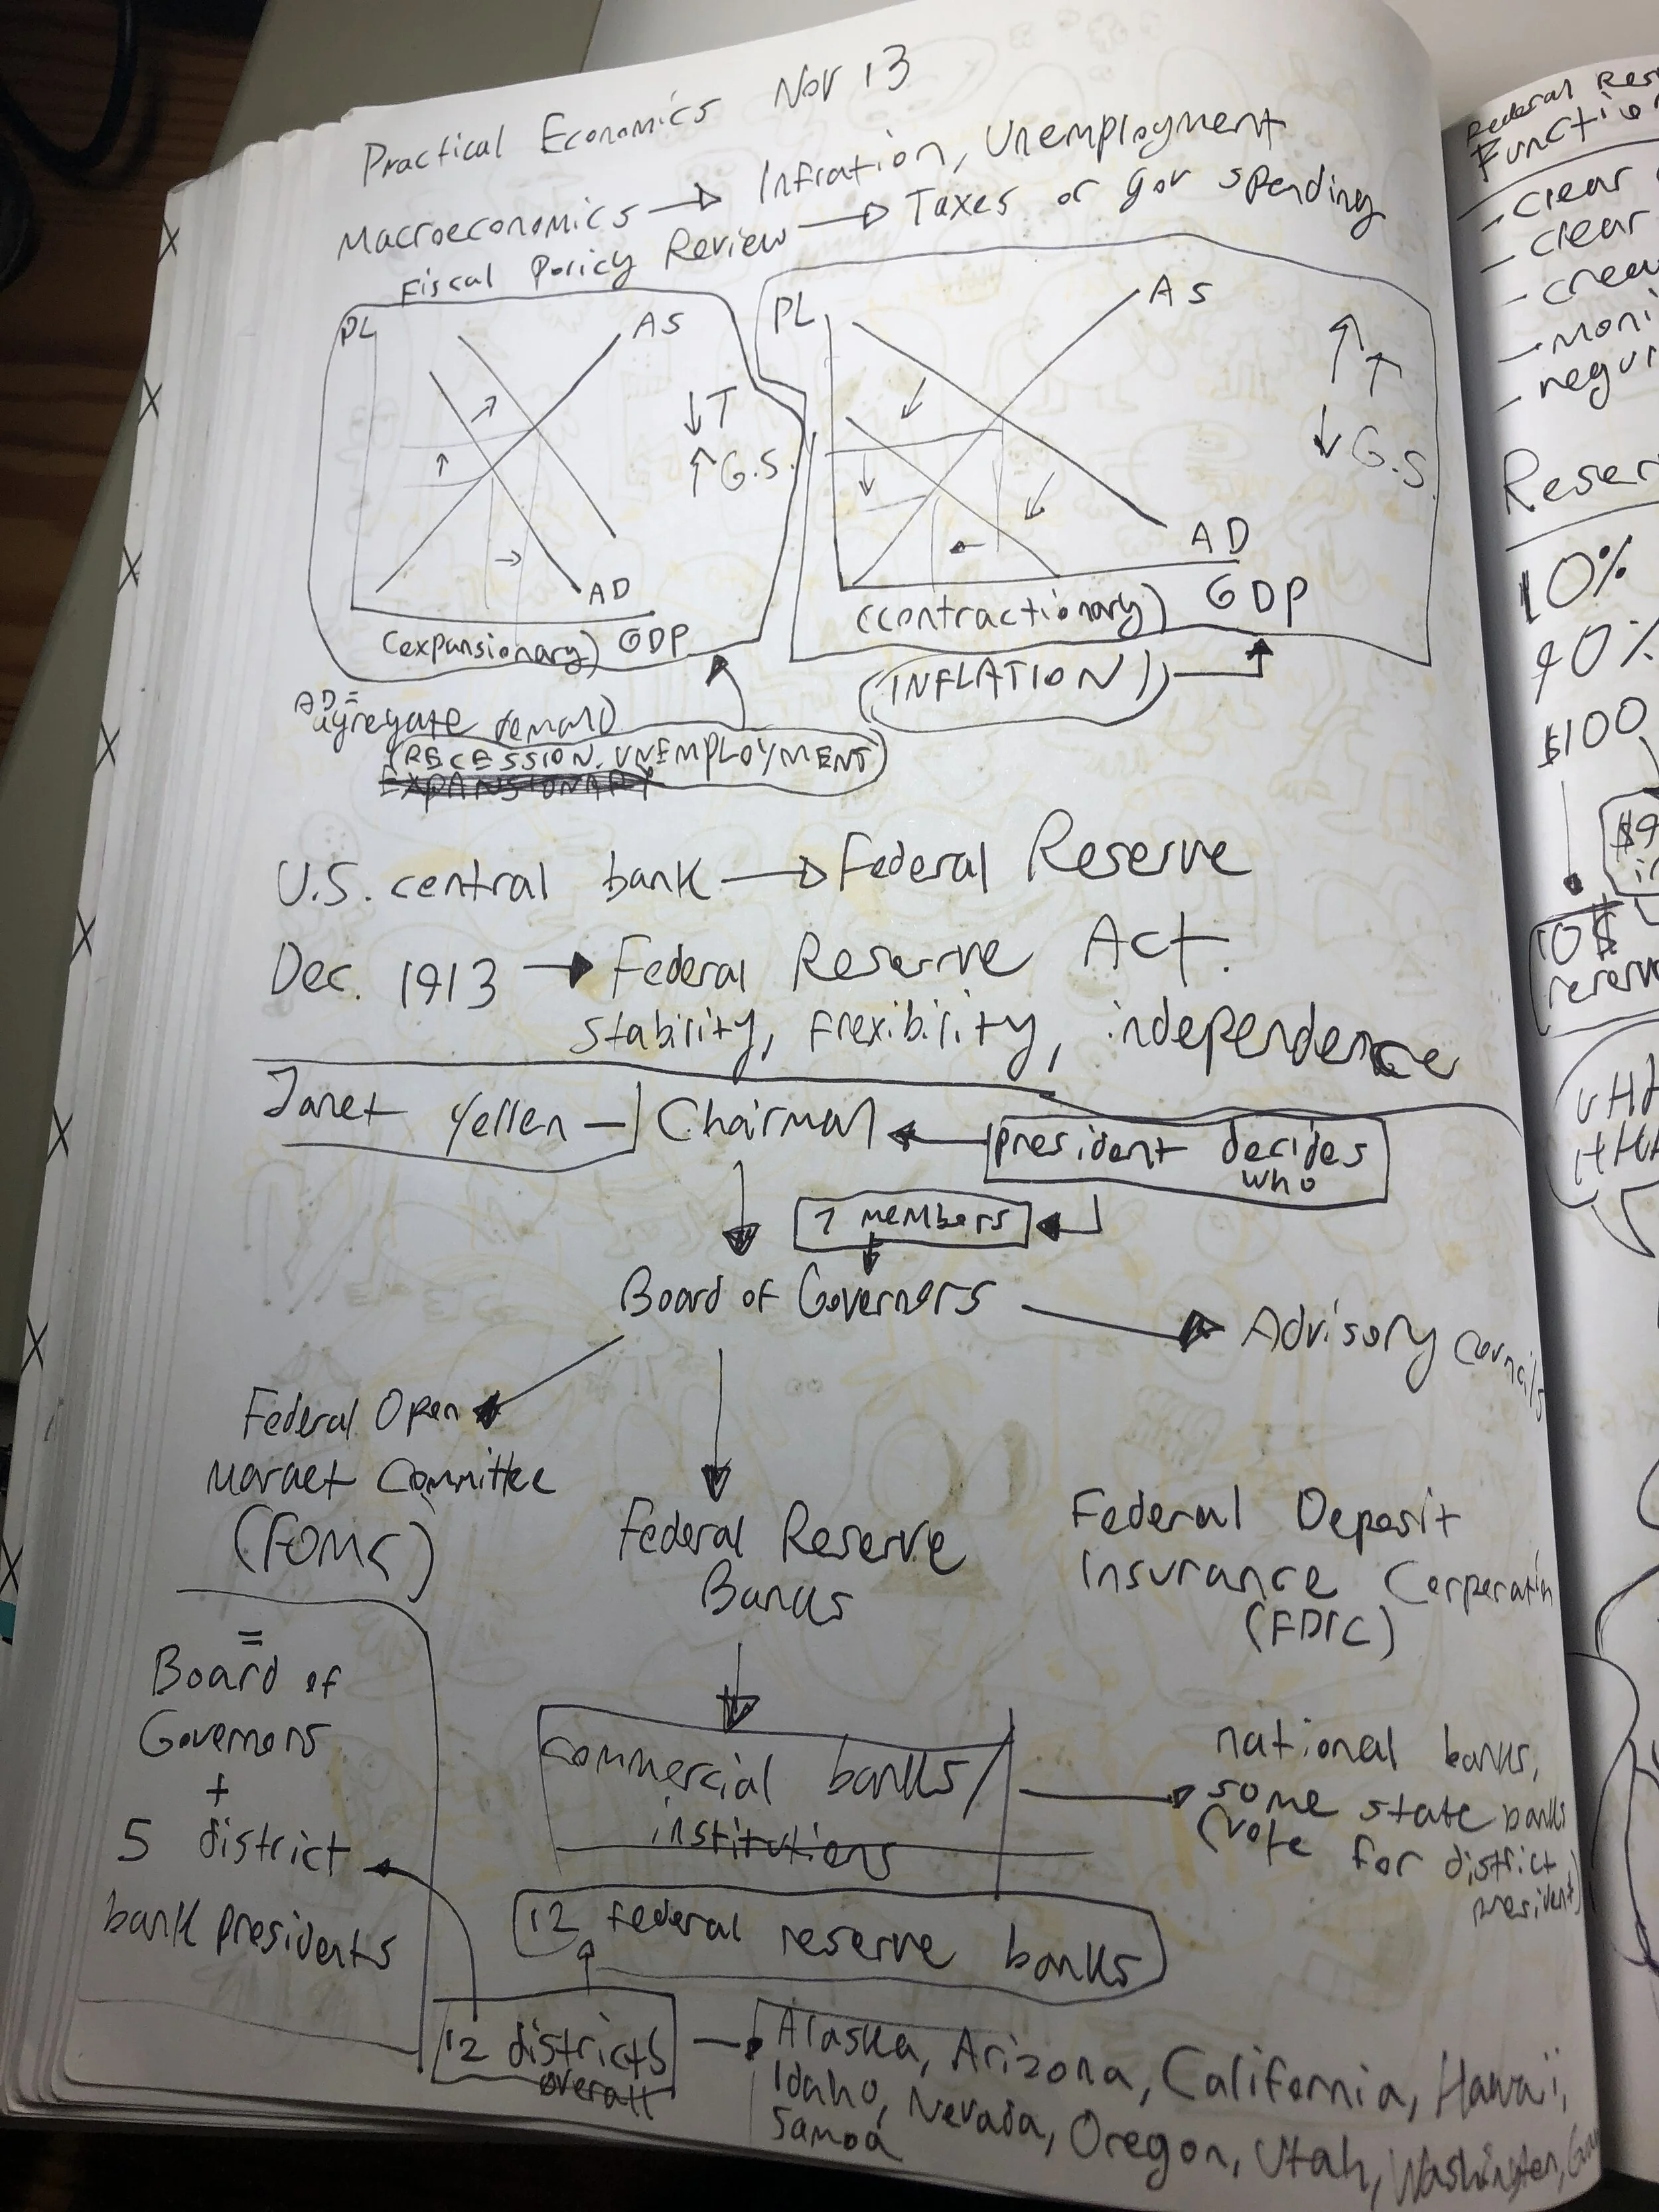 Practical Economics Nov 13
Macroeconomics → Infration, Unemployment
Fiscal Policy Review → Taxes or gov spending
PL
AS
↓T
↑G.S.
AD
(expansionary) GDP
PL
AS
↑↑
↓G.S.
AD
(contractionary) GDP
(INFLATION)
AD =
aggregate demand
(RECESSION, UNEMPLOYMENT)
EXPANSIONARY
U.S. central bank → Federal Reserve
Dec. 1913 → Federal Reserve Act.
stability, flexibility, independence
Janet Yellen – Chairman ← president decides
who
7 members
Board of Governors → Advisory Councils
Federal Open
Market Committee
(FOMC)
Federal Reserve
Banks
Federal Deposit
Insurance Corporation
(FDIC)
=
Board of
Governors
+
5 district
bank presidents
commercial banks/
institutions
national banks,
some state banks
(vote for district
president)
12 federal reserve banks
12 districts
overall
Alaska, Arizona, California, Hawaii,
Idaho, Nevada, Oregon, Utah, Washington,
Samoa
Federal
Functio
- clear
- clear
- crea
- moni
- regul
Reser
10%
90%
$100
10$
reserv